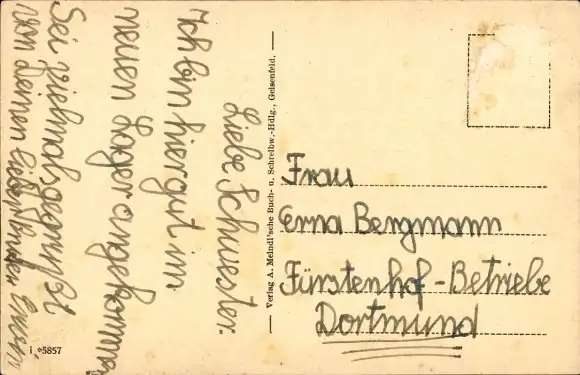 Liebe Schwester.
Ich bin hier gut im
neuen Lager angekommen
Sei vielmals gegrüßt
von Deinen
Verlag A. Meindl'sche Buch- u. Schreibw.-Hdlg., Geisenfeld.
Frau
Erna Bergmann
Fürstenhof-Betriebe
Dortmund
i. *5857